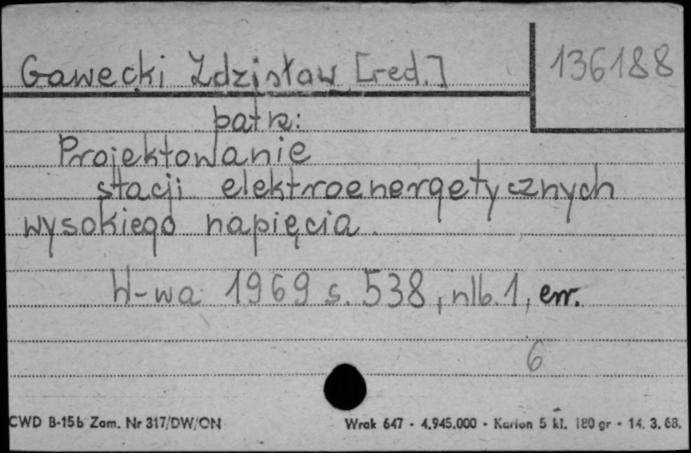 Gawecki Zdzisław [red.]
136188
patrz:
Projektowanie
stacji elektroenergetycznych
wysokiego napięcia.
W-wa 1969 s. 538, nlb. 1, err.
6
CWD B-15b Zam. Nr 317/DW/ON
Wrak 647 - 4.945.000 - Karton 5 kl. 180 gr - 14. 3. 68.